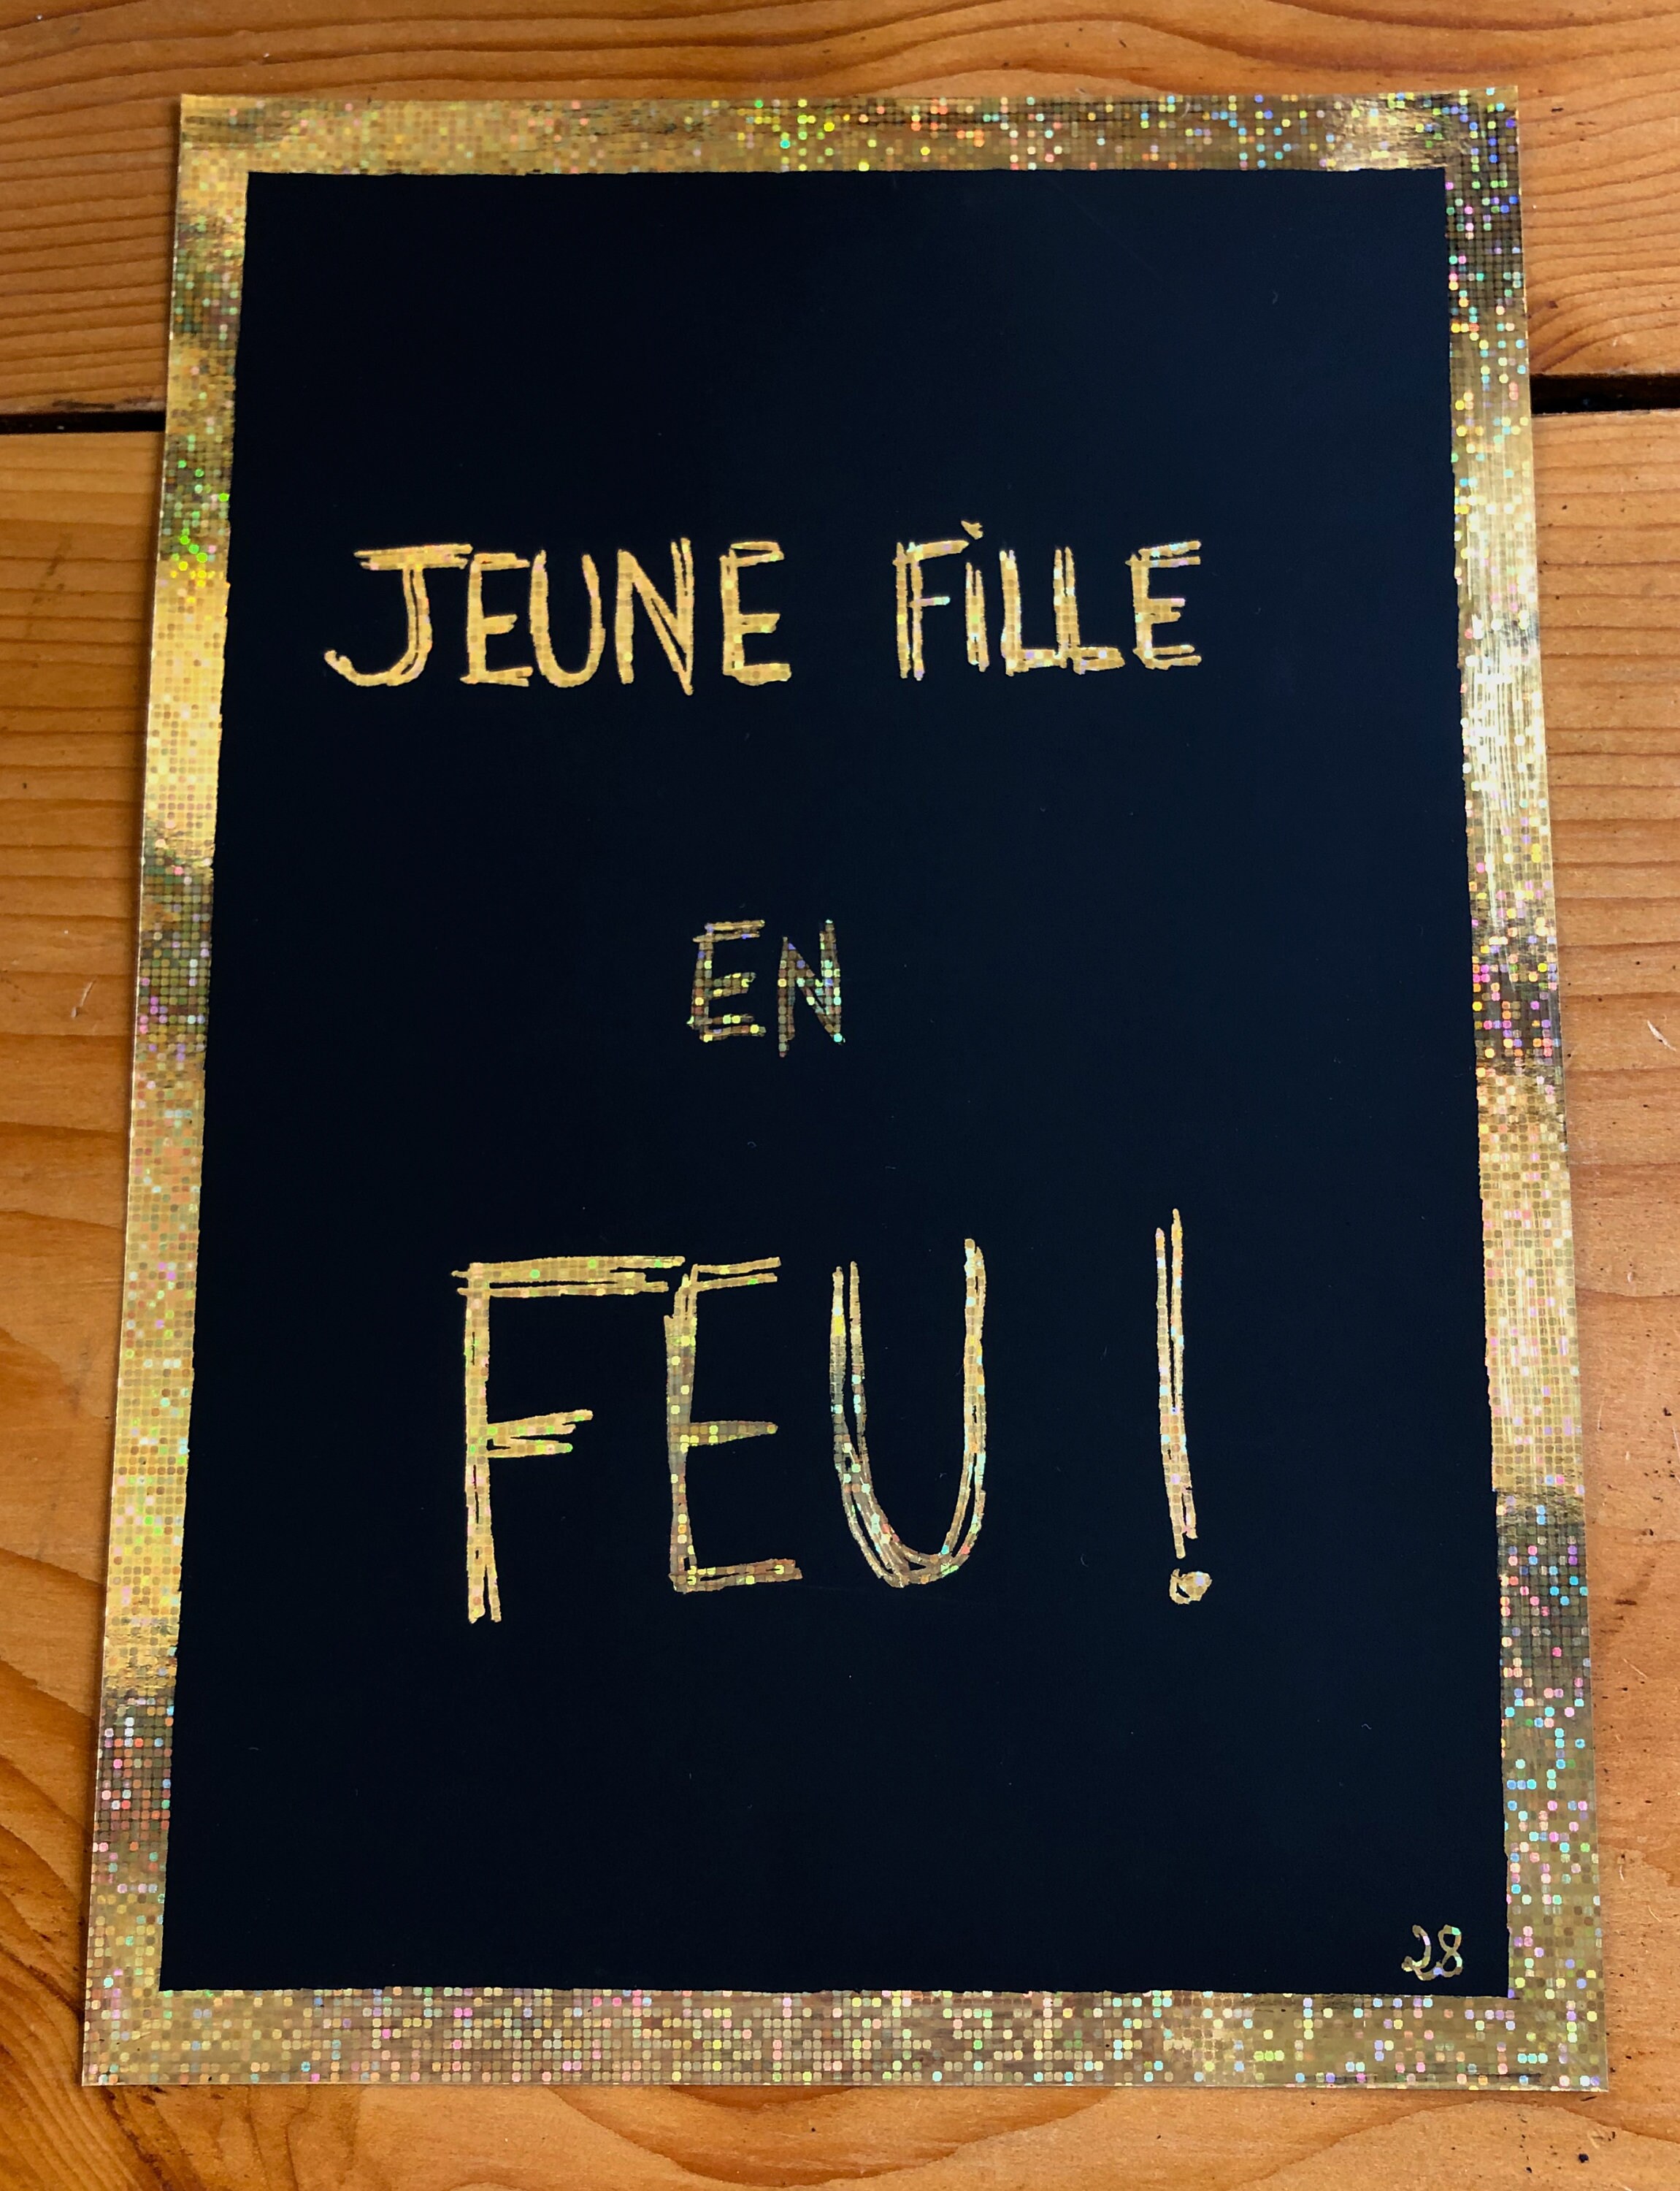 JEUNE FiLLE
EN
FEU !
28